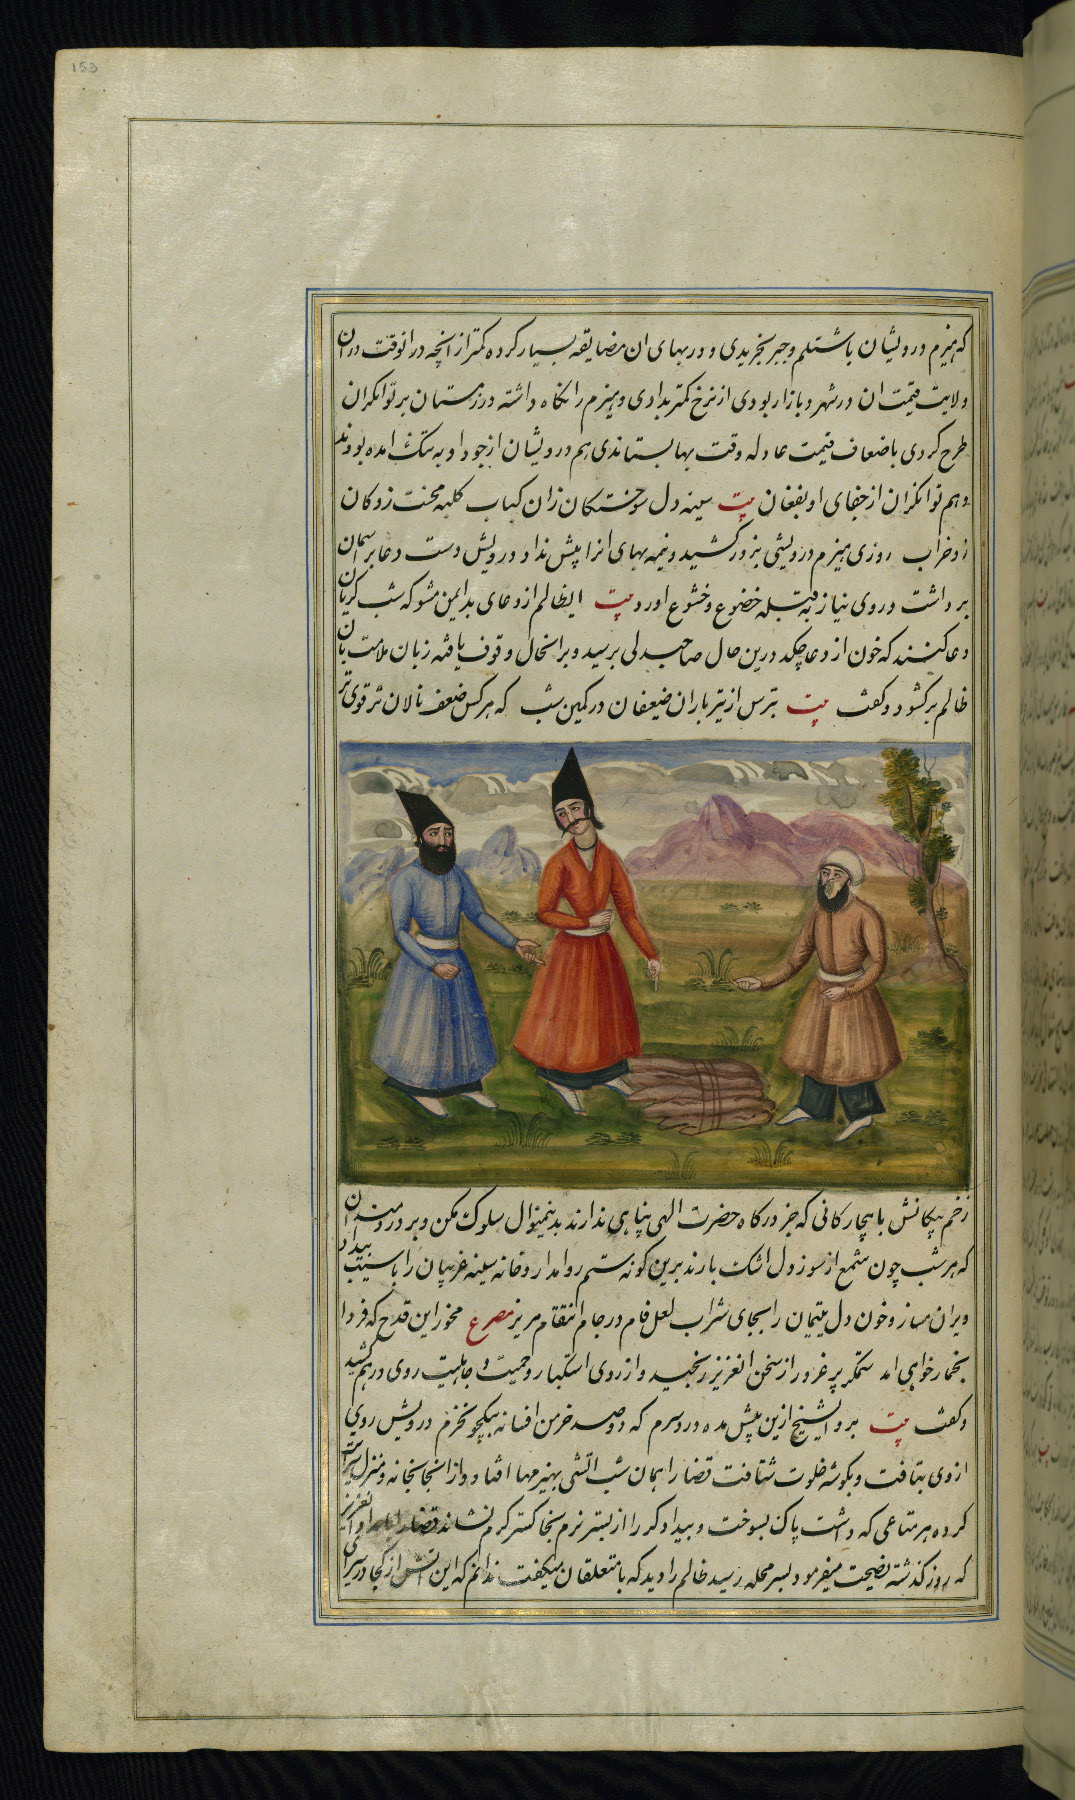 153
که هیزم درویشان باشتلم و جبر بخریدی و در بهای ان مضایقه بسیار کرده کمتر از انچه در انوقت در ان
ولایت قیمت ان در شهر و بازار بودی از نرخ کمتر بدادی و هیزم را نکاه داشته در زمستان بر توانکران
طرح کردی باضعاف قیمت عادله وقت بها بستاندی هم درویشان از جور او به تنک امده بودند
و هم توانکران از جفای او بفغان بیت سینه دل سوختکان زان کباب کلبه محنت زدکان
زو خراب روزی هیزم درویشی بزور کشید و نیمه بهای انرا پیش نداد درویش دست دعا بر اسمان
برداشت و روی نیاز به قبله خضوع و خشوع اورد بیت ایظالم از دعای بد ایمن مشو که شب کریان
دعا کنند که خون از دعا چکد درین حال صاحبدلی برسید و بر انحال وقوف یافته زبان ملامت بان
ظالم برکشود و کفت بیت بترس از تیر باران ضعیفان در کمین شب که هرکس ضعف نالان تر قوی تر
زخم پیکانش با بیچارکانی که جز درکاه حضرت الهی پناهی ندارند بدینمنوال سلوک مکن و بر دردمندان
که هر شب چون شمع از سوز دل اشک بارند برین کونه ستم روا مدار و خانه سینه غریبان را باسیب بیداد
ویران مساز و خون دل یتیمان را بجای شراب لعل فام در جام انتقام مریز مصرع مخور این قدح که فردا
بخمار خواهی امد ستمکر پر غرور از سخن انعزیز برنجید و از روی استکبار و حمیت جاهلیت روی در هم کشید
و کفت بیت برو ایشیخ ازین پیش مده درد سرم که دو صد خرمن افسانه بیکجو نخرم درویش روی
ازوی بتافت و بکوشه خلوت شتافت قضا را همان شب اتشی بهیزمها افتاد و از انجا بخانه و منزل سرایت
کرده هر متاعی که داشت پاک بسوخت و بیدادکر را از بستر نرم بخاکستر کرم نشاند قضا را انعزیز
که روز کذشته نصیحت میفرمود بسر محله رسید ظالم را دید که با متعلقان میکفت ندانم که این اتش از کجا در سرای